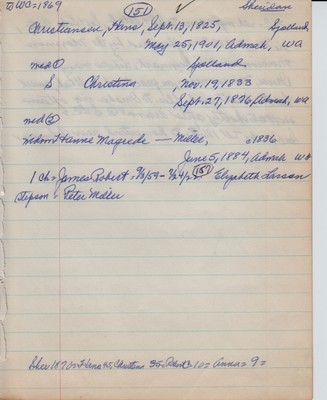 WA=1869 (151) ✓ Sheridan
Christiansen, Hans, Sept. 13, 1825, Sjolland,
May 25, 1901, Admah, WA
med ① Sjolland
S Christina, Nov. 19, 1833
Sept. 27, 1876, Admah, WA
med ②
Hanne Magrede — Miller, 1836
June 5, 1884, Admah WA
1 ch = James Robert = (151) Elizabeth Larson
Stepson = Peter Miller
1870 = Hans 45 Christina 35 10 = Anna = 9 =